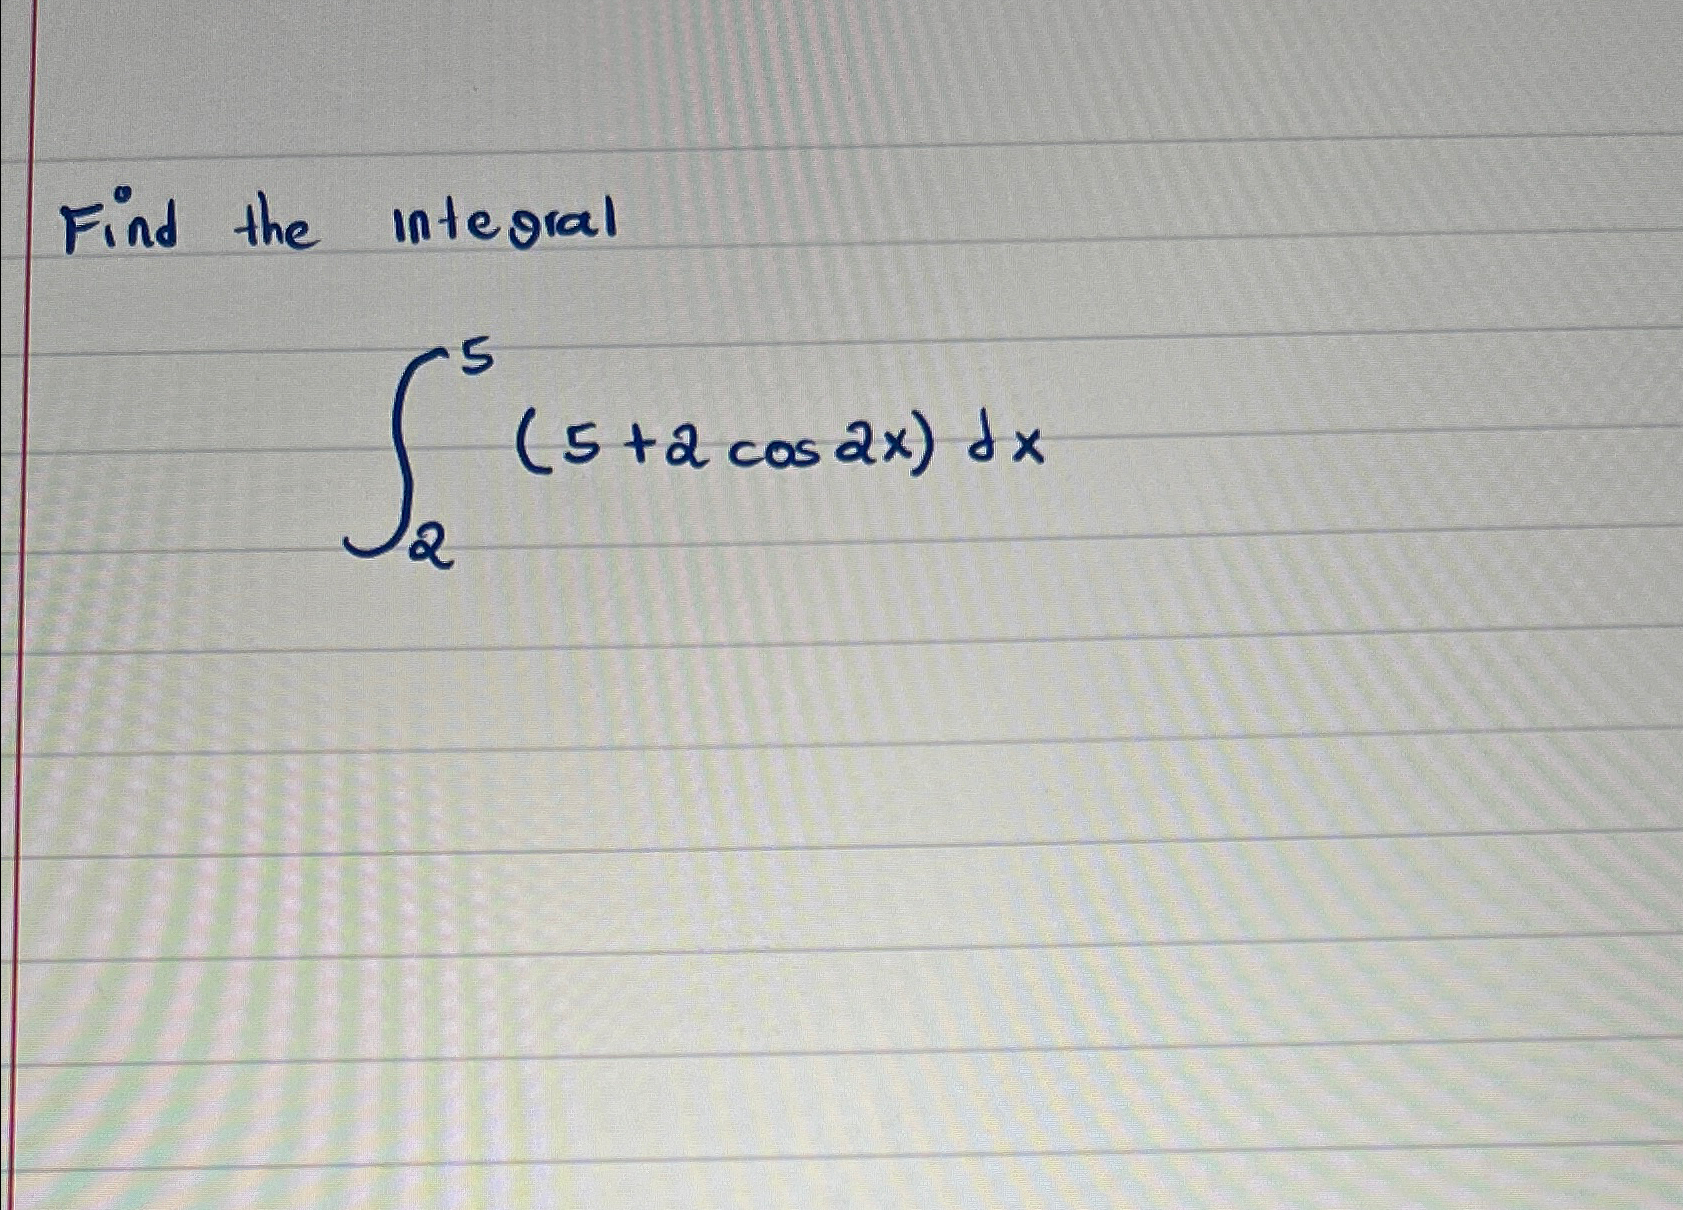 Find the integral
∫₂⁵ (5+2 cos 2x) dx